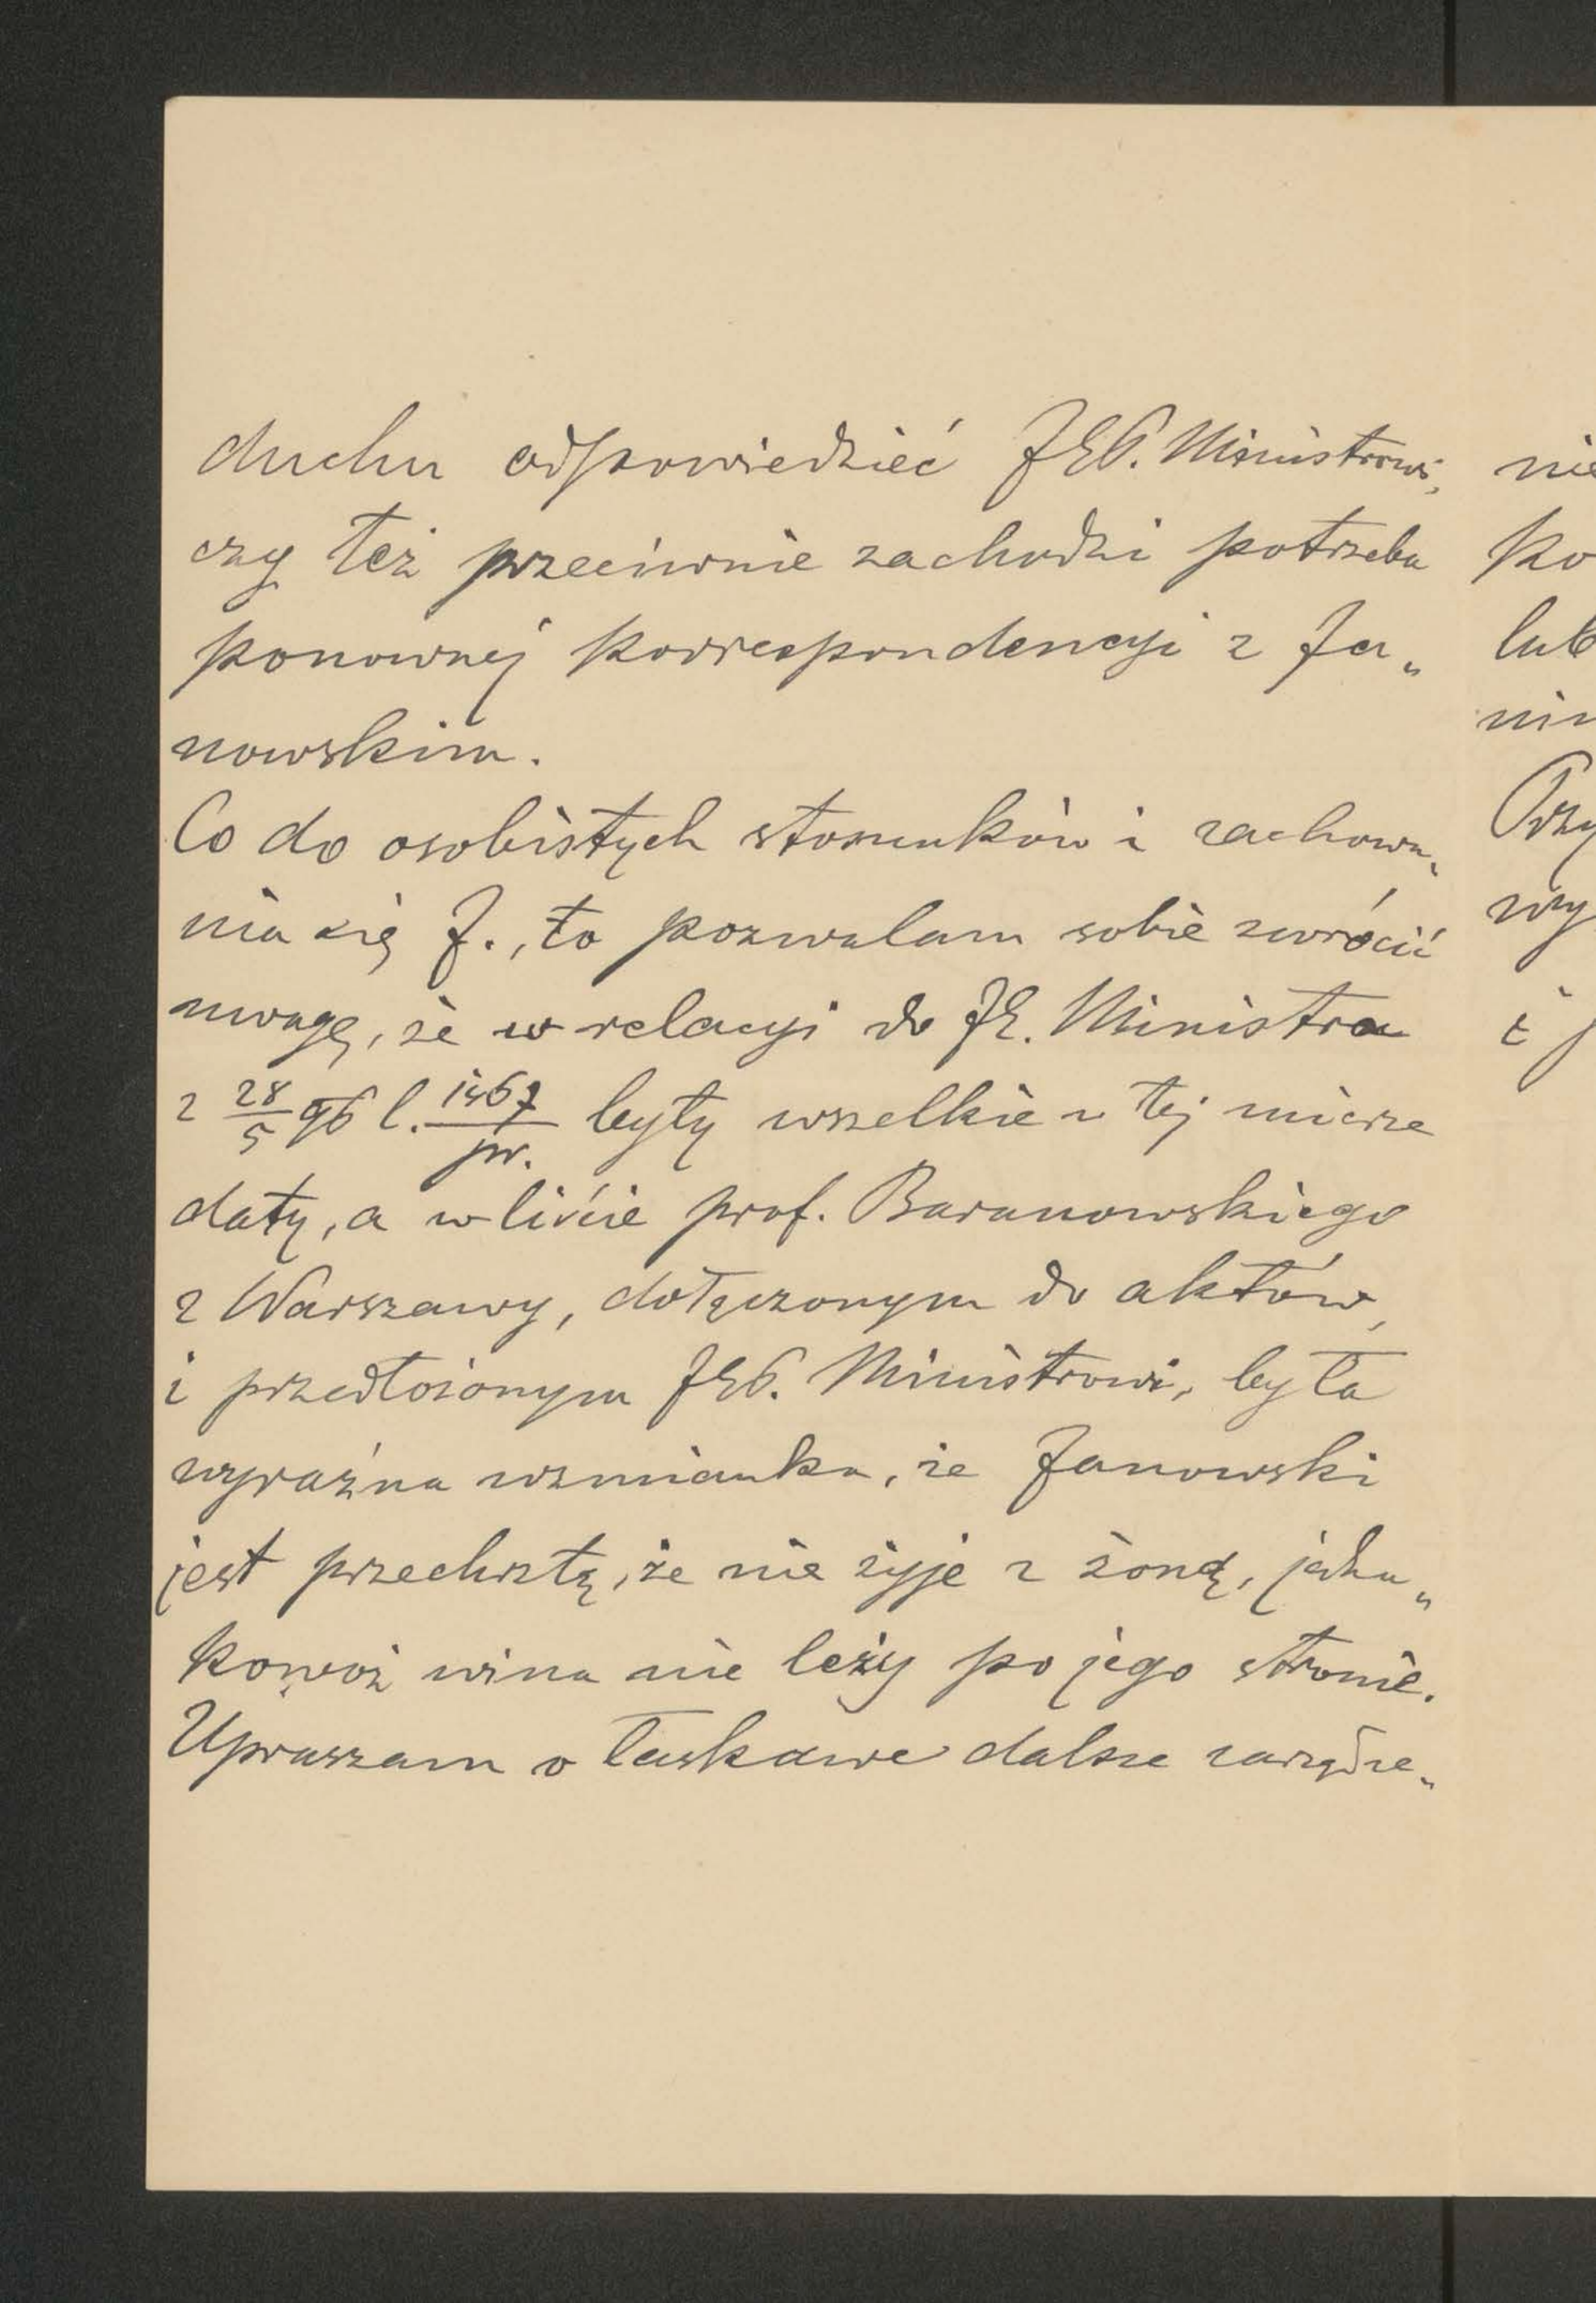 duchu odpowiedzieć JEP. Ministrowi,
czy też przeciwnie zachodzi potrzeba
ponownej korrespondencyi z Ja„
nowskim.
Co do osobistych stosunków i zachowa„
nia się J., to pozwalam sobie zwrócić
uwagę, że w relacyi do JE. Ministra
z 28/5 96 l. 1467/pr. były wszelkie w tej mierze
daty, a w liście prof. Baranowskiego
z Warszawy, dołączonym do aktów,
i przedłożonym JEP. Ministrowi, była
wyraźna wzmianka, że Janowski
jest przechrztą, że nie żyje z żoną, jedna„
kowoż wina nie leży po jego stronie.
Upraszam o łaskawe dalsze zarządze„
nie
ko
lub
nin
Przy
wy
i j